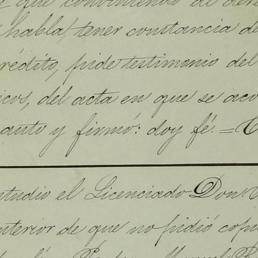 que conviniendo al dere
habla, tener constancia de
rédito, pide testimonio del
icos, del acta en que se aco
auto y firmó: doy fé.—
studio el Licenciado Don
nterior de que no pidió copi